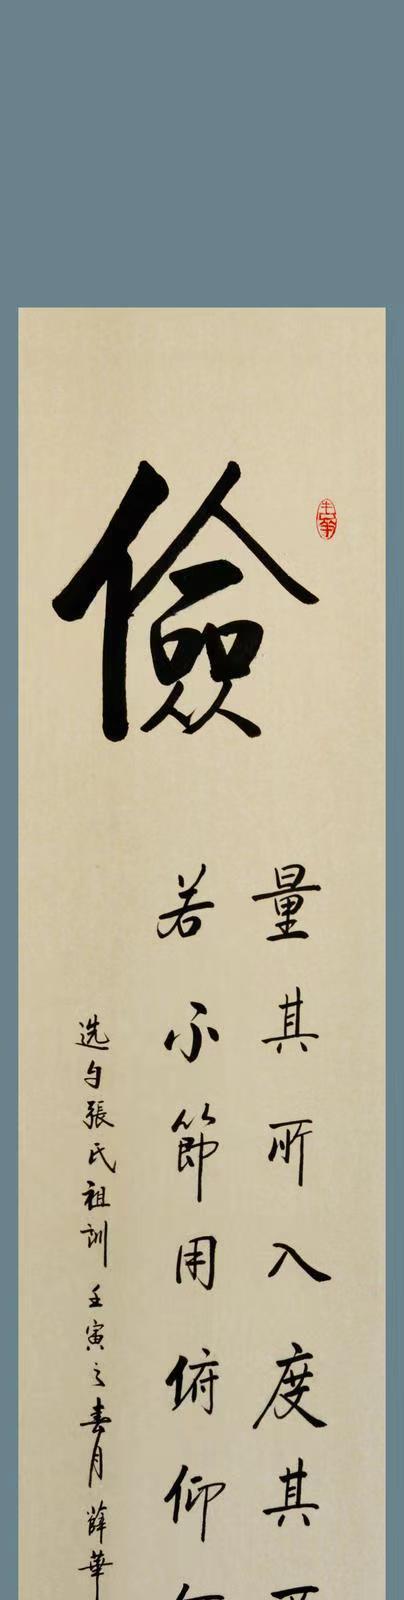 儉
量其所入度其
若不節用俯仰
选句張氏祖訓 壬寅之春月 薛華